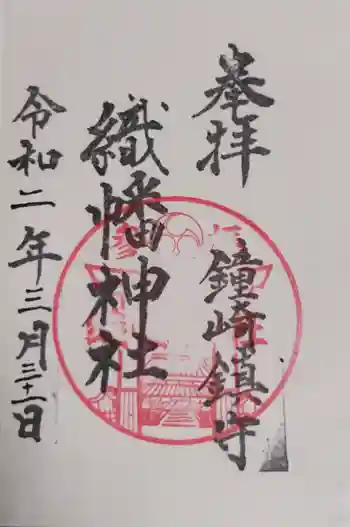 奉拝
鐘崎鎮守
織幡神社
令和二年三月三十一日